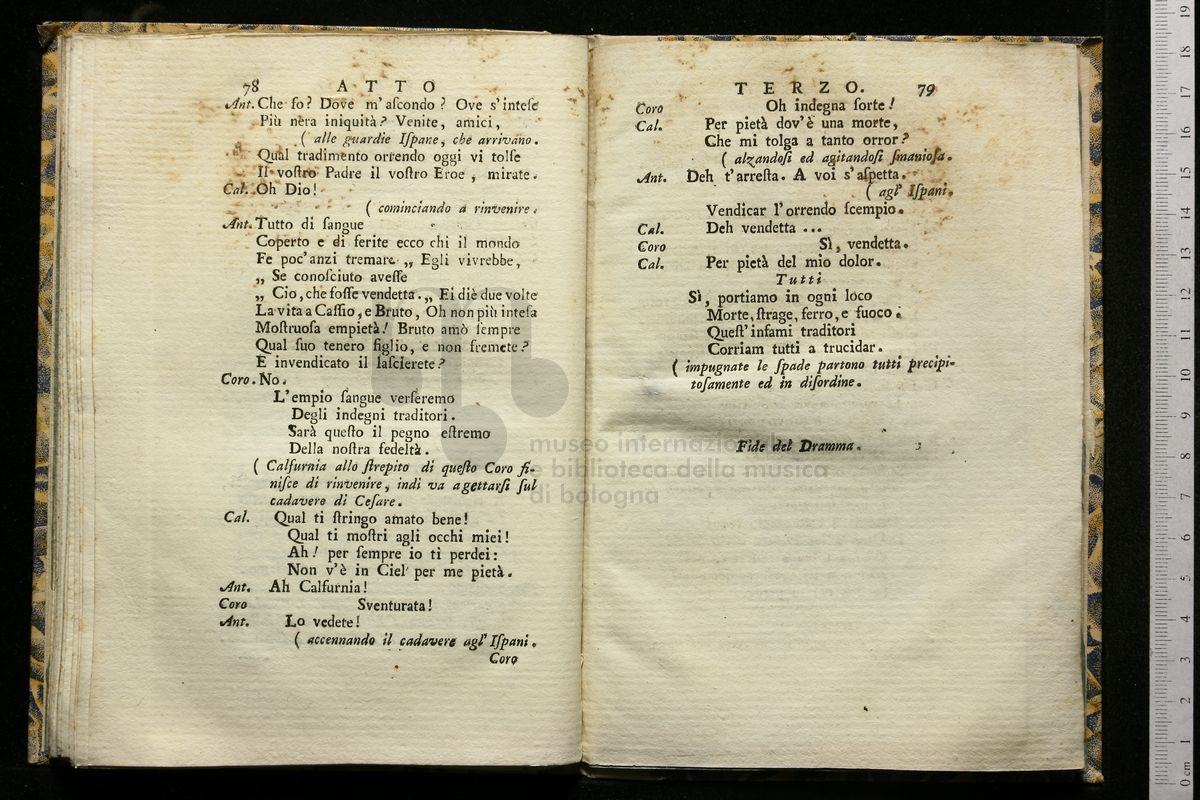 78 ATTO
Ant. Che fo? Dove m'ascondo? Ove s'intese
Più nera iniquità? Venite, amici,
( alle guardie Ispane, che arrivano.
Qual tradimento orrendo oggi vi tolse
Il vostro Padre il vostro Eroe, mirate.
Cal. Oh Dio!
( cominciando a rinvenire.
Ant. Tutto di sangue
Coperto e di ferite ecco chi il mondo
Fe poc'anzi tremare „ Egli vivrebbe,
„ Se conosciuto avesse
„ Cio, che fosse vendetta. „ Ei diè due volte
La vita a Cassio, e Bruto, Oh non più intesa
Mostruosa empietà! Bruto amò sempre
Qual suo tenero figlio, e non fremete?
E invendicato il lascierete?
Coro. No.
L'empio sangue verseremo
Degli indegni traditori.
Sarà questo il pegno estremo
Della nostra fedeltà.
( Calfurnia allo strepito di questo Coro fi-
nisce di rinvenire, indi va a gettarsi sul
cadavere di Cesare.
Cal. Qual ti stringo amato bene!
Qual ti mostri agli occhi miei!
Ah! per sempre io ti perdei:
Non v'è in Ciel per me pietà.
Ant. Ah Calfurnia!
Coro Sventurata!
Ant. Lo vedete!
( accennando il cadavere agl' Ispani.
Coro
TERZO. 79
Coro Oh indegna sorte!
Cal. Per pietà dov'è una morte,
Che mi tolga a tanto orror?
( alzandosi ed agitandosi smaniosa.
Ant. Deh t'arresta. A voi s'aspetta.
( agl' Ispani.
Vendicar l'orrendo scempio.
Cal. Deh vendetta ...
Coro Sì, vendetta.
Cal. Per pietà del mio dolor.
Tutti
Sì, portiamo in ogni loco
Morte, strage, ferro, e fuoco.
Quest' infami traditori
Corriam tutti a trucidar.
( impugnate le spade partono tutti precipi-
tosamente ed in disordine.
Fide del Dramma.
museo internazionale
e biblioteca della musica
di bologna
0 cm 1 2 3 4 5 6 7 8 9 10 11 12 13 14 15 16 17 18 19